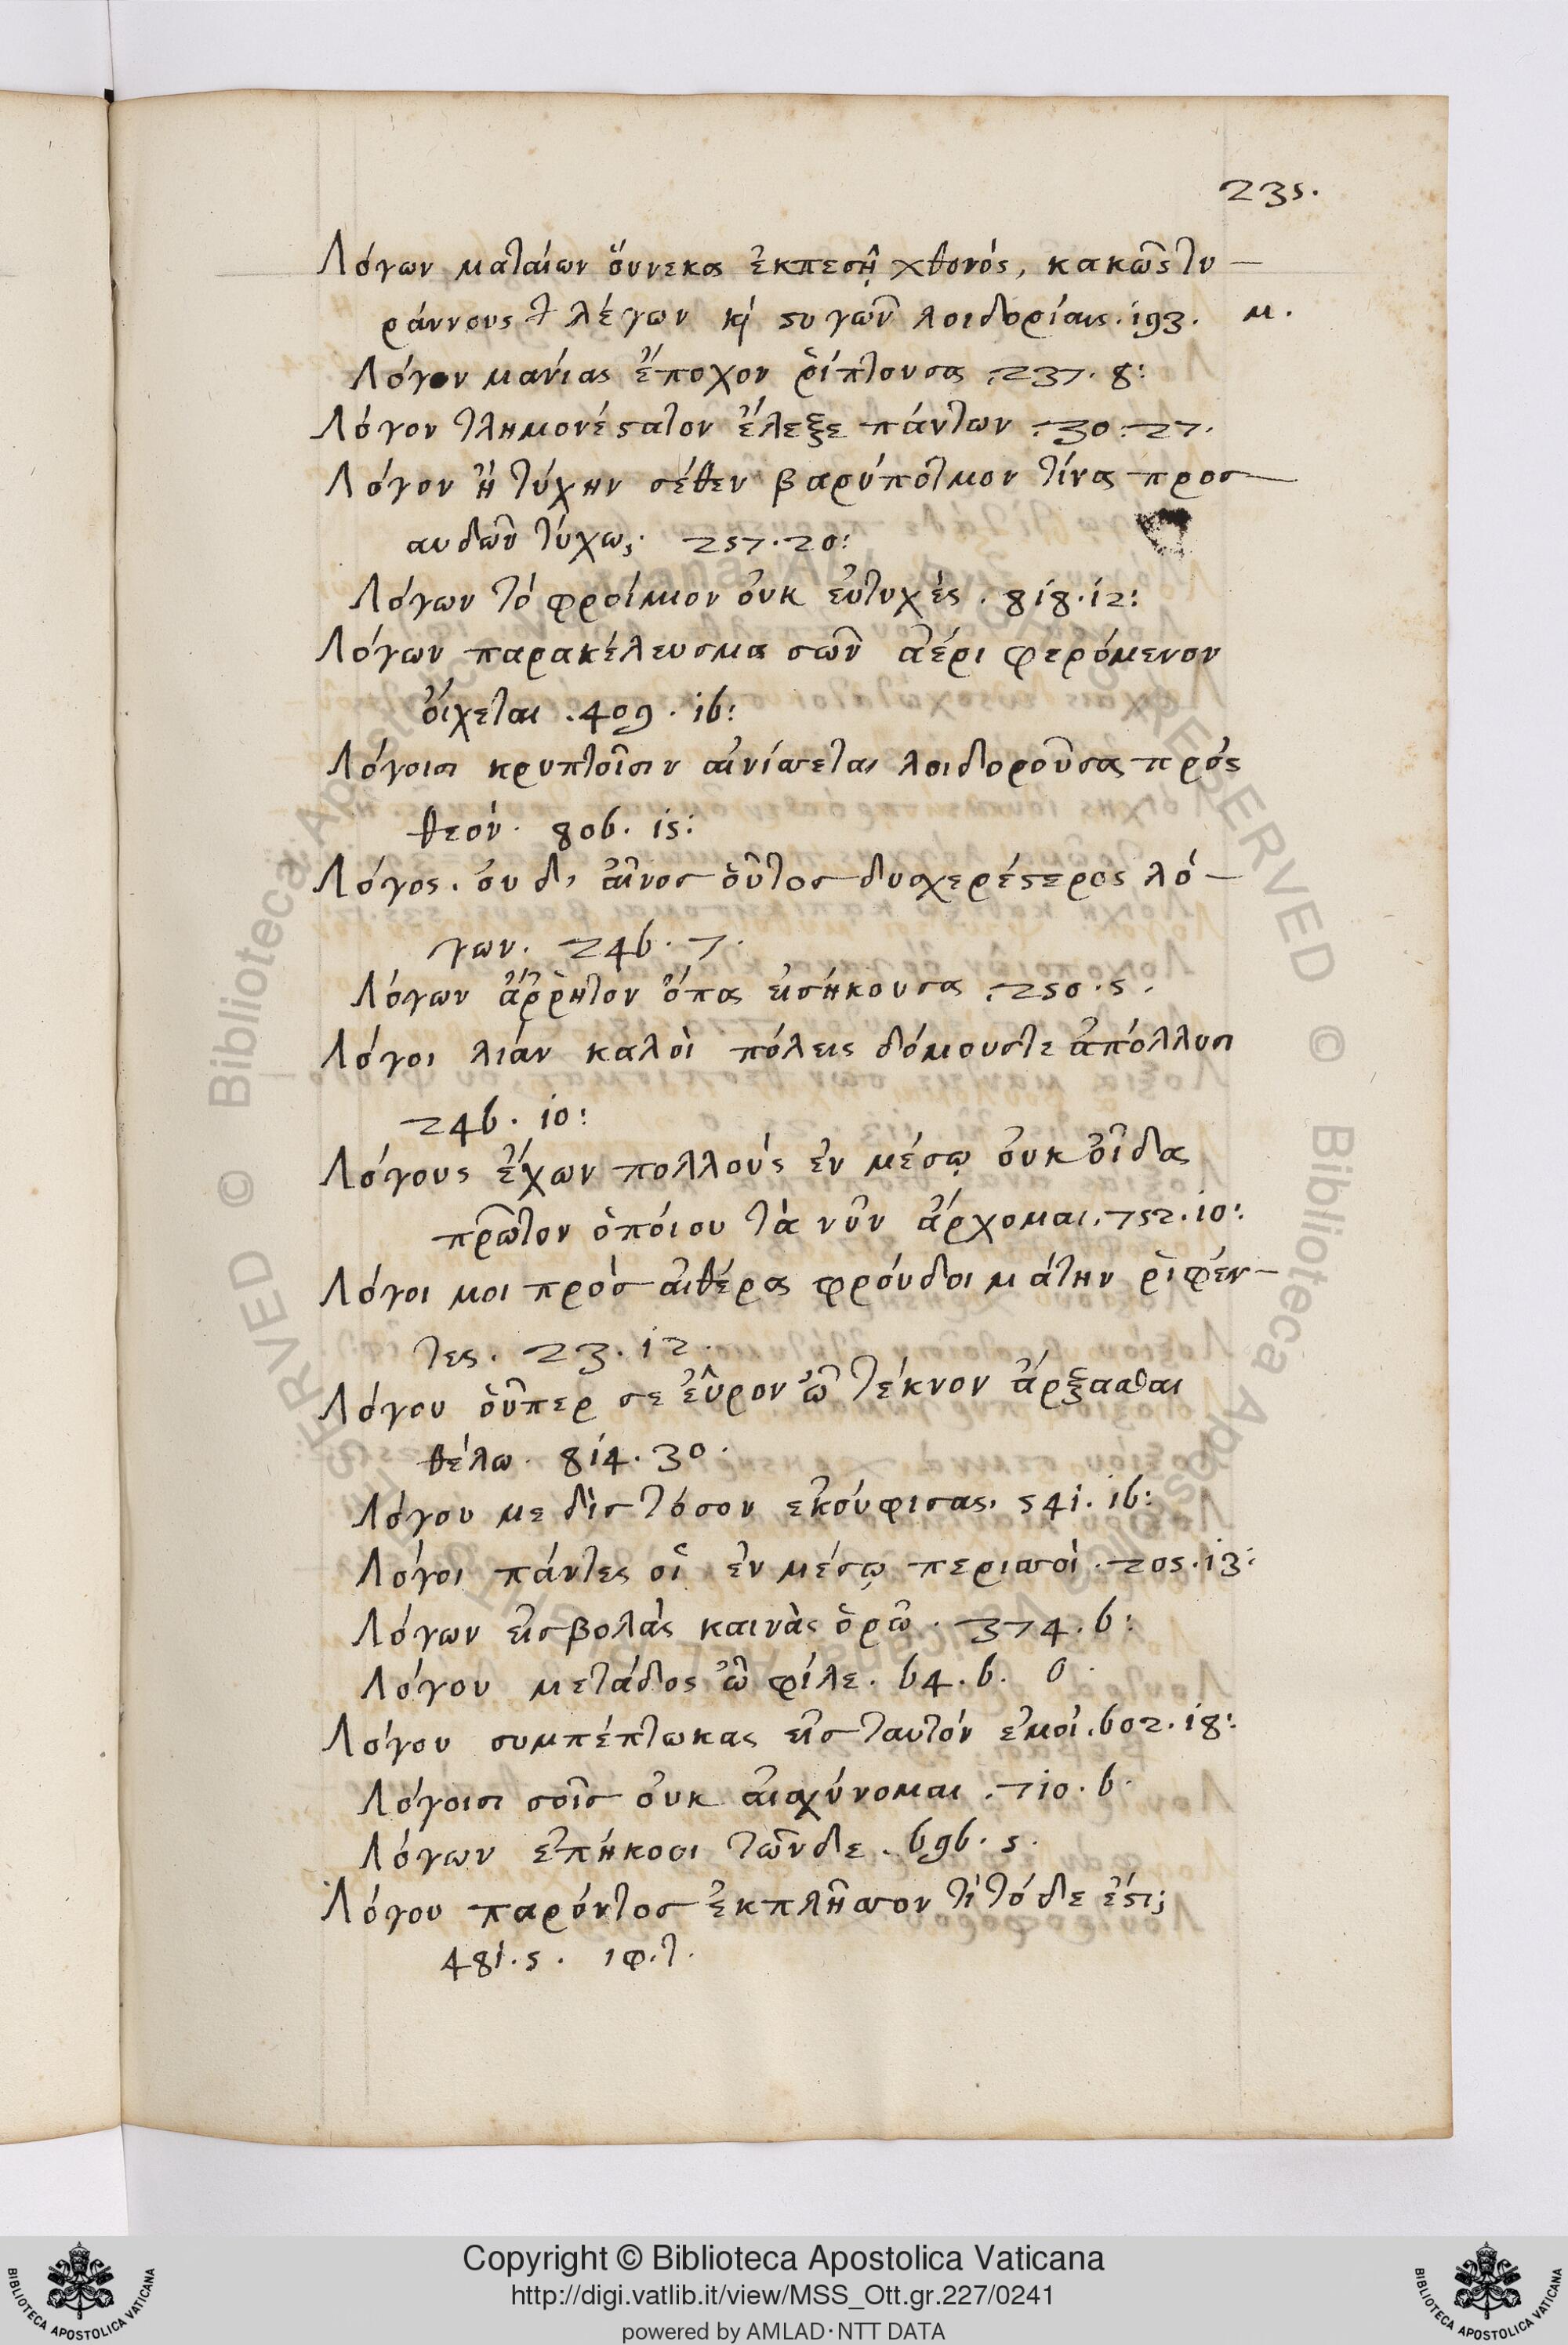 235.
Λόγων ματαίων ὅυνεκα ἐκπεσῇ χθονός, κακῶς τυ—
ράννους λέγων κὶ στυγῶν λοιδορίαις. 193. μ.
Λόγον μανίας ἔποχον ῥίπτουσα. 237. 8:
Λόγον τλημονέστατον ἔλεξε πάντων. 730. 27.
Λόγον ἢ τύχην σέθεν βαρύποτμον τίνα προσ—
αυδῶν τύχω; 257. 20:
Λόγων τὸ φροίμιον οὐκ εὐτυχές. 818. 12:
Λόγων παρακέλευσμα σῶν ἀέρι φερόμενον
οἴχεται. 409. 16:
Λόγοισι κρυπτοῖσιν αἰνίσσεται λοιδοροῦσα πρὸς
θεόν. 806. 15:
Λόγος. ου δ' αἶνος οὗτος δυσχερέστερος λό—
γων. 246. 7.
Λόγων ἄῤῥητον ὄπα εἰσήκουσα. 250. 5.
Λόγοι λιάν καλοὶ πόλεις δόμους τε ἀπόλλυσι
246. 10:
Λόγους ἔχων πολλοὺς ἐν μέσῳ οὐκ οἶδα
πρῶτον ὁπόιου τὰ νῦν ἄρχομαι. 752. 10:
Λόγοι μοι πρὸς αἰθέρα φρούδοι μάτην ῥιφέν—
τες. 23. 12.
Λόγου οὗπερ σε εὗρον ὦ τέκνον ἄρξασθαι
θέλω. 814. 30.
Λόγου με δὶς τόσον ἐκούφισας. 541. 16:
Λόγοι πάντες οἱ ἐν μέσῳ περισσοὶ. 205. 13:
Λόγων εἰσβολὰς καινὰς ὁρῶ. 374. 6:
Λόγου μετάδος ὦ φίλε. 64. 6. ο.
Λόγου συμπέπτωκας εἰς ταυτόν ἐμοί. 602. 18:
Λόγοισι σοῖς οὐκ αἰσχύνομαι. 710. 6.
Λόγων ἐπήκοοι τῶνδε. 696. 5.
Λόγου παρόντος ἐκπλῆσσον τί τόδε ἐστι;
481. 5. ιφ. τ.
Copyright © Biblioteca Apostolica Vaticana
http://digi.vatlib.it/view/MSS_Ott.gr.227/0241
powered by AMLAD·NTT DATA